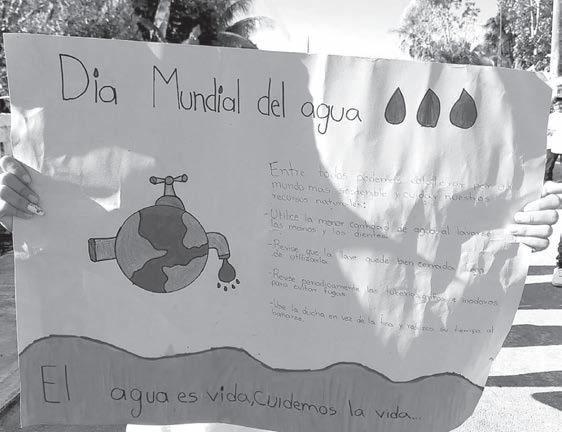 Dia Mundial del agua
Entre todos podemos
mundo mas sostenible y cuidar nuestros
recursos naturales:
-Utilice la menor cantidad de agua al lavarse
las manos y los dientes.
-Revise que la llave quede bien cerrada
de utilizarla.
-Revise periodicamente las tuberias
para evitar fugas
-Use la ducha en vez de la tina y su tiempo al
bañarse.
El agua es vida, Cuidemos la vida...